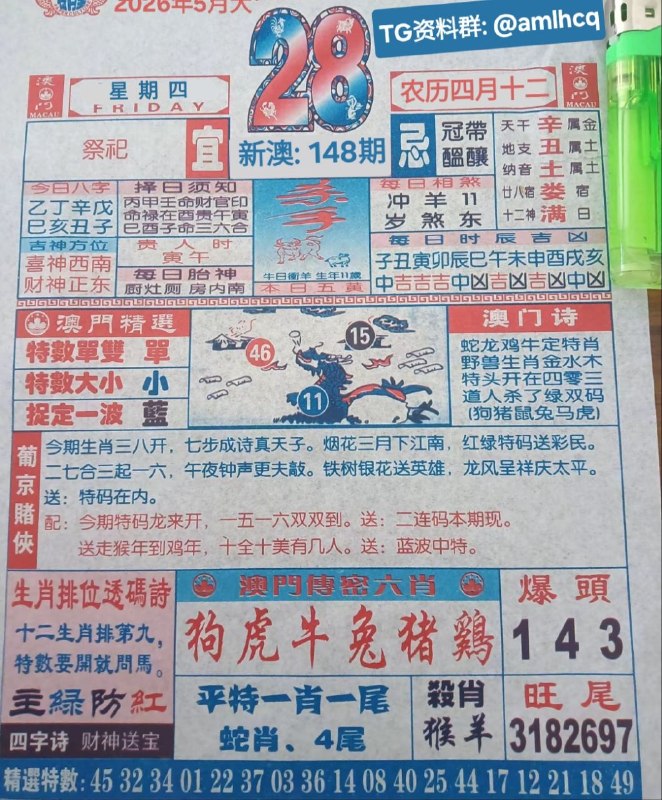 2026年5月大
TG资料群: @amlhcq
28
澳门
MACAU
星期四
FRIDAY
农历四月十二
澳门
MACAU
祭祀
宜
新澳: 148期
忌
冠帶
醞釀
天干 辛 属金
地支 丑 属土
纳音 土 属土
廿八宿 娄 宿
十二神 满 日
今日八字
乙丁辛戊
巳亥丑子
吉神方位
喜神西南
财神正东
择日须知
丙甲壬命财官印
命禄在酉贵午寅
巳酉子命三六合
贵人时
寅午
每日胎神
厨灶厕 房内南
牛日衝羊 生年11歲
本日五黄
每日相煞
冲羊11
岁煞东
每日时辰吉凶
子丑寅卯辰巳午未申酉戌亥
中吉吉吉吉中凶凶吉凶中凶
澳門精選
特數單雙 單
特數大小 小
捉定一波 藍
46
15
11
澳门诗
蛇龙鸡牛定特肖
野兽生肖金水木
特头开在四零三
道人杀了绿双码
(狗猪鼠兔马虎)
葡京賭俠
今期生肖三八开，七步成诗真天子。烟花三月下江南，红绿特码送彩民。
二七合三起一六，午夜钟声更夫敲。铁树银花送英雄，龙风呈祥庆太平。
送：特码在内。
配：今期特码龙来开，一五一六双双到。送：二连码本期现。
送走猴年到鸡年，十全十美有几人。送：蓝波中特。
生肖排位透碼詩
十二生肖排第九，
特數要開就問馬。
主綠防紅
四字诗 财神送宝
澳門傳密六肖
狗虎牛兔猪鷄
平特一肖一尾
蛇肖、4尾
殺肖
猴羊
爆頭
1 4 3
旺尾
3182697
精選特數: 45 32 34 01 22 37 03 36 14 08 40 25 44 17 12 21 18 49